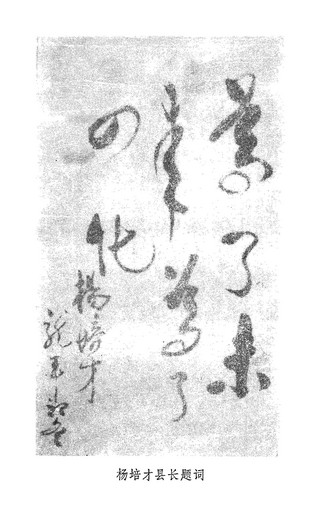 為了未
来為了
四化
杨培才
杨培才县长题词